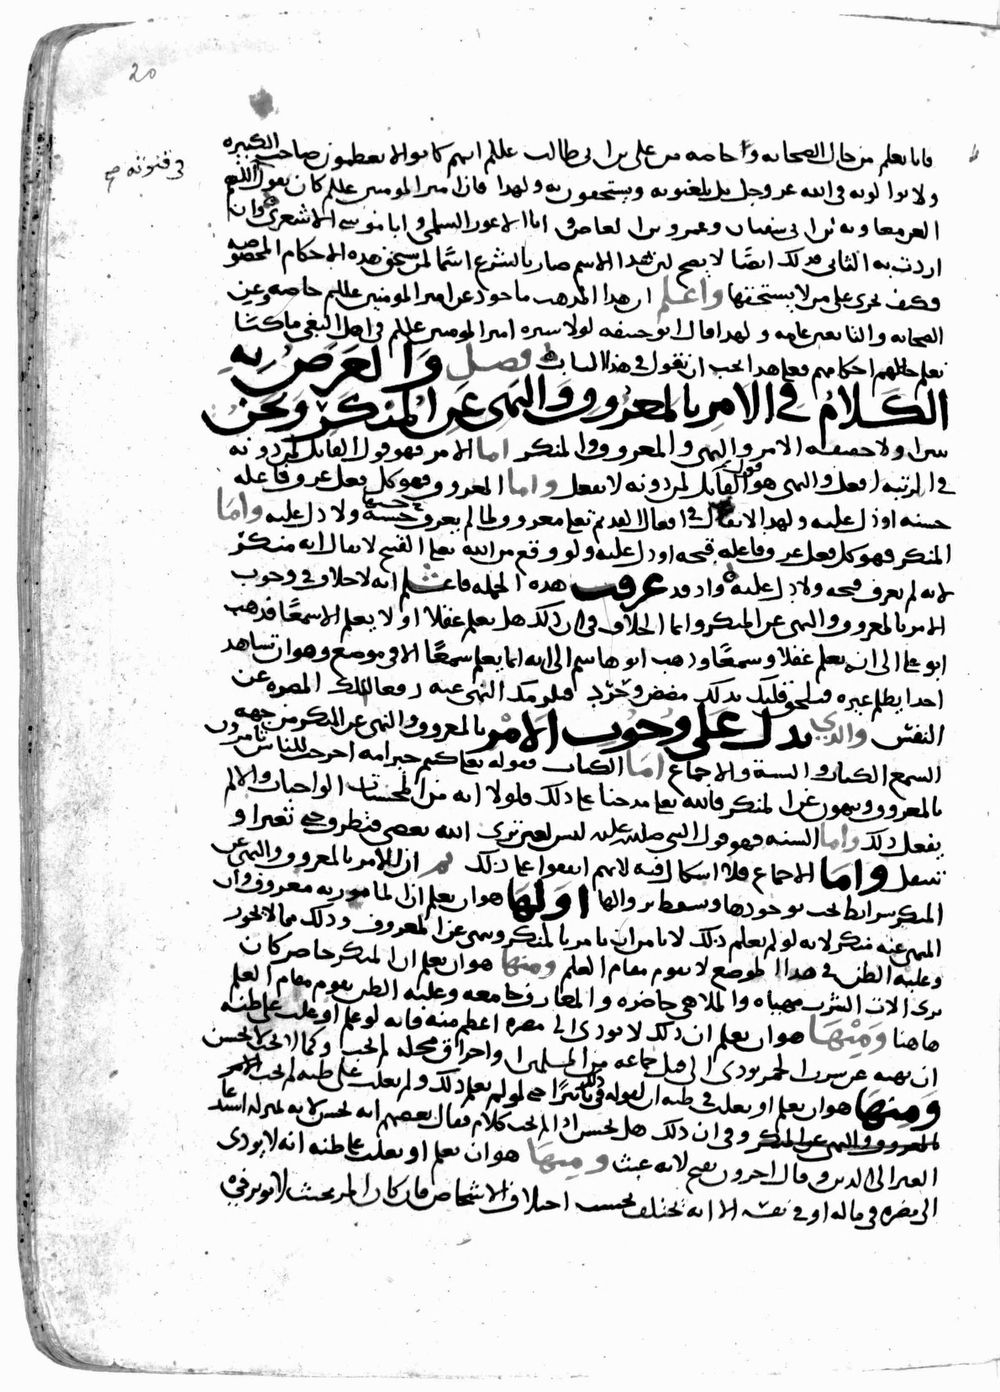 20
في قنوته صح
فانا نعلم من حال الصحابه وخاصه من علي بن ابي طالب عللم انهم كانوا لا يعظمون صاحب الكبيره
ولا يوالونه في الله عز وجل بل يلعنونه ويستخفون به ولهذا فان امير المومنين عللم كان يقول اللهم
العن معاويه بن ابي سفيان وعمرو بن العاص وابا الاعور السلمي وابا موسى الاشعري وان
اردت به الثاني فذلك ايضًا لا يصح لان هذا الاسم صار بالشرع اسمًا لمن يستحق هذه الاحكام المخصوصه
وكيف يجرى على من لا يستحقها واعلم ان هذا المذهب ماخوذ عن امير المومنين عللم خاصه وعن
الصحابه والتابعين عامه ولهذا قال ابو حنيفه لولا سيره امير المومنين عللم في اهل البغي ما كنا
نعلم احكامهم فعلى هذا يجب ان نقول في هذا الباب فصل والغرض به
الكلام في الامر بالمعروف والنهي عن المنكر ونحن
نبين اولا حقيقه الامر والنهي والمعروف والمنكر اما الامر فهو قول القايل لمن دونه
في الرتبه افعل والنهي هو قول القايل لمن دونه لا تفعل واما المعروف فهو كل فعل عرف فاعله
حسنه او دل عليه ولهذا لا يقال في افعال القديم تعلى معروف لما لم يعرف حسنها ولا دل عليه واما
المنكر فهو كل فعل عرف فاعله قبحه او دل عليه ولو وقع من الله تعلى القبيح لا يقال انه منكر
لانه لم يعرف قبحه ولا دل عليه واذ قد عرفت هذه الجمله فاعلم انه لا خلاف في وجوب
الامر بالمعروف والنهي عن المنكر وانما الخلاف في ان ذلك هل يعلم عقلا او لا يعلم الا سمعًا فذهب
ابو علي الى انه يعلم عقلا وسمعًا وذهب ابو هاشم الى انه انما يعلم سمعًا الا في موضع وهو ان تشاهد
احدا يظلم غيره فيلحق قلبك بذلك مضض وحرد فيلزمك النهي عنه دفعا لتلك المضره عن
النفس والذي يدل على وجوب الامر بالمعروف والنهي عن المنكر من جهه
السمع الكتاب والسنة والاجماع اما الكتاب فقوله تعلى كنتم خير امه اخرجت للناس تامرون
بالمعروف وتنهون عن المنكر فالله تعلى مدحنا على ذلك فلولا انه من المحسنات الواجبات والا لم
يفعل ذلك واما السنه فهو قول النبي صلى الله عليه ليس لعين ترى الله يعصى فتطرف حتى تغير او
تنتقل واما الاجماع فلا اشكال فيه لانهم اتفقوا على ذلك ثم ان للامر بالمعروف والنهي عن
المنكر شرايط يجب بوجودها ويسقط بزوالها اولها هو ان يعلم ان المامور به معروف وان
المنهي عنه منكر لانه لو لم يعلم ذلك لا يامن ان يامر بالمنكر وينهى عن المعروف وذلك مما لا يجوز
وغلبه الظن في هذا الموضع لا يقوم مقام العلم ومنها هو ان يعلم ان المنكر حاضر كان
يرى الات الشرب مهياه والملاهي حاضره والمعازف جامعه وغلبه الظن يقوم مقام العلم
هاهنا ومنها هو ان يعلم ان ذلك لا يودى الى مضره اعظم منه فانه لو علم او غلب على ظنه
ان نهيه عن شرب الخمر يودى الى قتل جماعه من المسلمين او احراق محله لم يجب وكما لا يجب لا يحسن
ومنها هو ان يعلم او يغلب في ظنه ان لقوله فيه تاثيرًا حتى لو لم يعلم ذلك ولم يغلب على ظنه لم يجب الامر
بالمعروف والنهي عن المنكر وفي ان ذلك هل يحسن اذا لم يجب كلام فقال بعضهم انه يحسن لانه بمنزله استدعا
الغير الى الدين وقال اخرون يقبح لانه عبث ومنها هو ان يعلم او يغلب على ظنه انه لا يودى
الى مضره في ماله او في نفسه الا انه يختلف بحسب اختلاف الاشخاص فان كان المر بحيث لا يوثر فيه